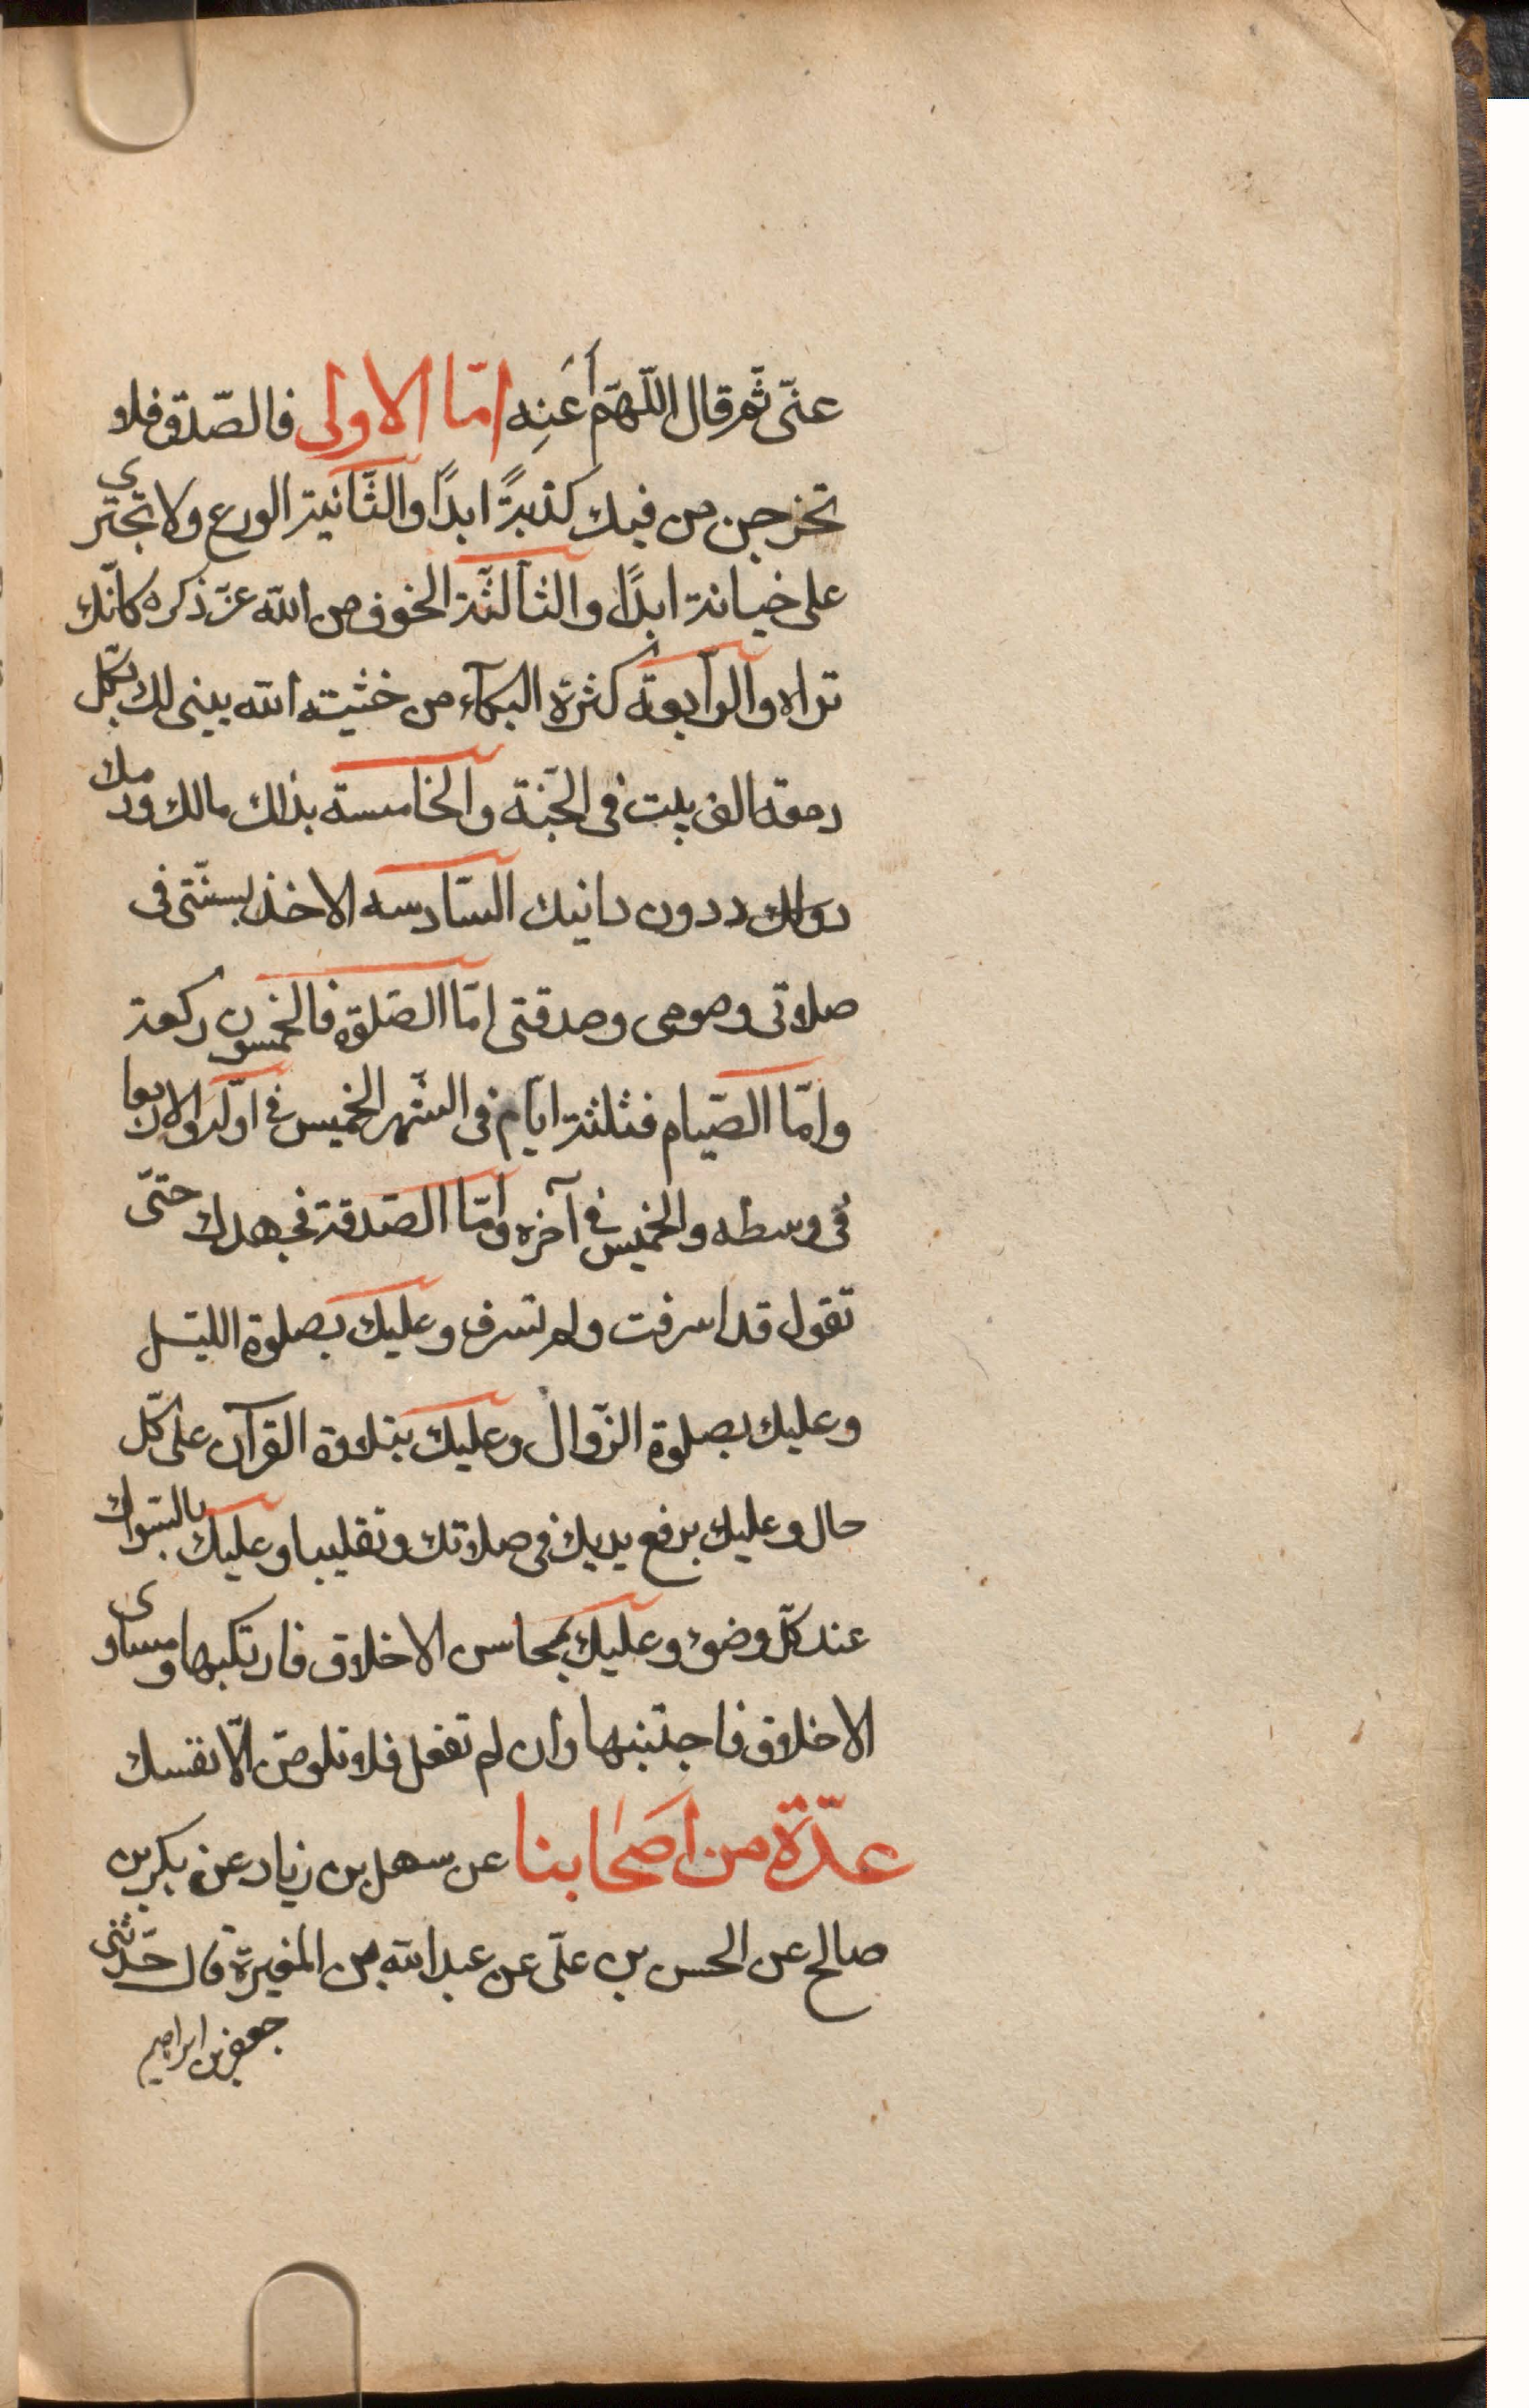 عنّى ثمّ قال اللّهمّ أَعَنِه امّا الاولى فالصّدق فلا
تخرجن من فيك كذبةً ابدًا والثّانية الورع ولا تجترى
على خيانة ابدًا والثالثّة الخوف من الله عزّ ذكره كانّك
تراه والرّابعة كثرة البكآء من خشيته الله يبنى لك بكلّ
دمعة الف بيت فى الجنّة والخامسة بذلك مالك ودمك
دون دينك السّادسه الاخذ بسنّتى فى
صلاتى وصومى وصدقتى امّا الصّلوة فالخمسون ركعة
وامّا الصّيام فثلثة ايّام فى الشّهر الخميس فى اوّله والاربعا
فى وسطه والخميس فى آخره وامّا الصّدقة فجهدك حتّى
تقول قد اسرفت ولم تسرف وعليك بصلوة الليل
وعليك بصلوة الزّوال وعليك بتلاوة القرآن على كلّ
حال وعليك برفع يديك فى صلاتك وتقليبها وعليك بالسّواك
عند كلّ وضوء وعليك بمحاسن الاخلاق فارتكبها ومساوى
الاخلاق فاجتنبها وان لم تفعل فلا تلومنّ الّا نفسك
عدّة من اصحابنا عن سهل بن زياد عن بكر بن
صالح عن الحسن بن علىّ عن عبد الله بن المغيرة قال حدّثنى
جعفر بن ابراهيم